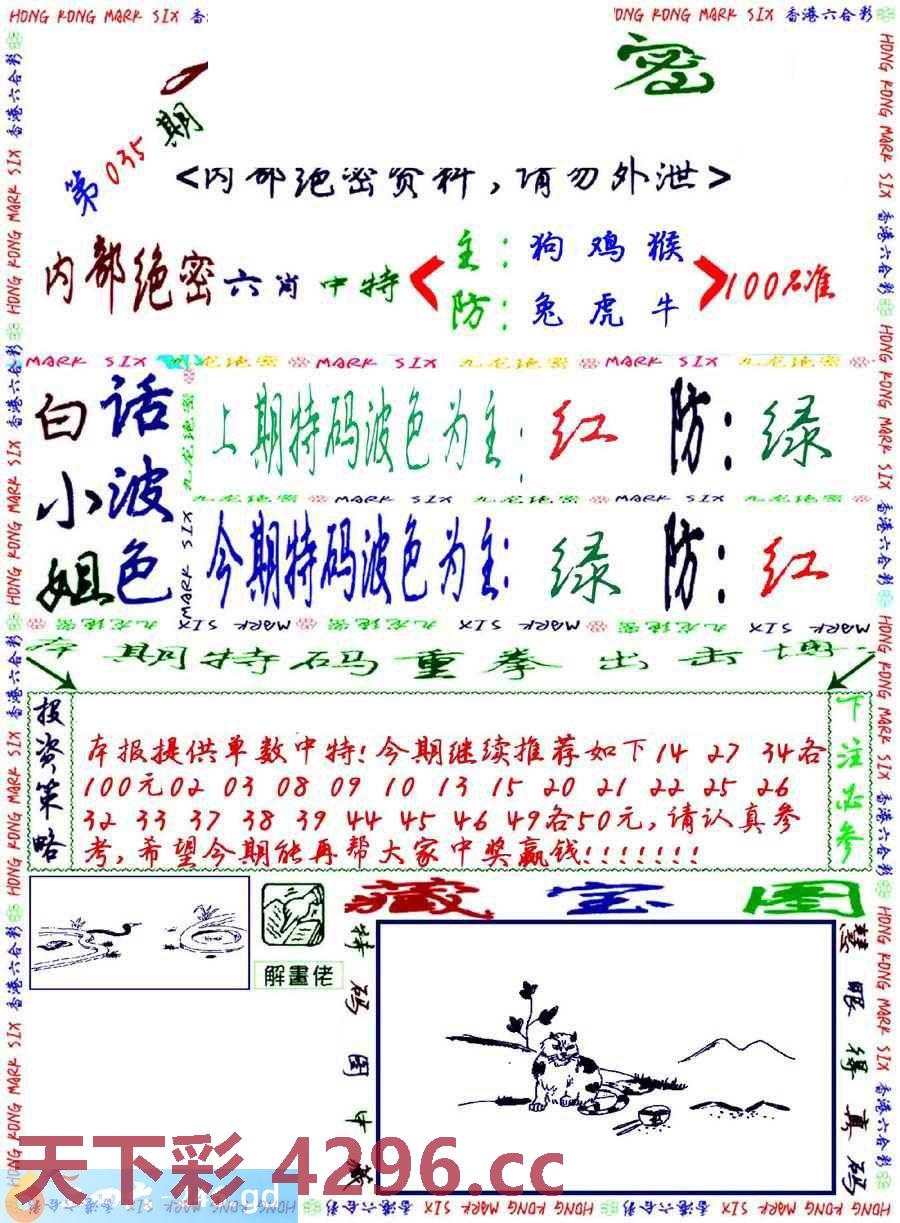 HONG KONG MARK SIX 香港六合彩
密
第035期
<内部绝密资料，请勿外泄>
内部绝密六肖中特
主：狗 鸡 猴
防：兔 虎 牛
100%准
MARK SIX 九龙绝密 MARK SIX 九龙绝密 MARK SIX 九龙绝密
白话小波姐色
上期特码波色为主：红 防：绿
九龙绝密 MARK SIX 九龙绝密 MARK SIX 九龙绝密 MARK SIX
今期特码波色为主：绿 防：红
期特码重拳出击
投资策略
本报提供单数中特！今期继续推荐如下14 27 34各
100元02 03 08 09 10 13 15 20 21 22 25 26
32 33 37 38 39 44 45 46 49各50元，请认真参
考，希望今期能再帮大家中奖赢钱！！！！！！！
下注必参
藏宝图
解畫佬
特码图中藏
慧眼得真码
天下彩 4296.cc
gd